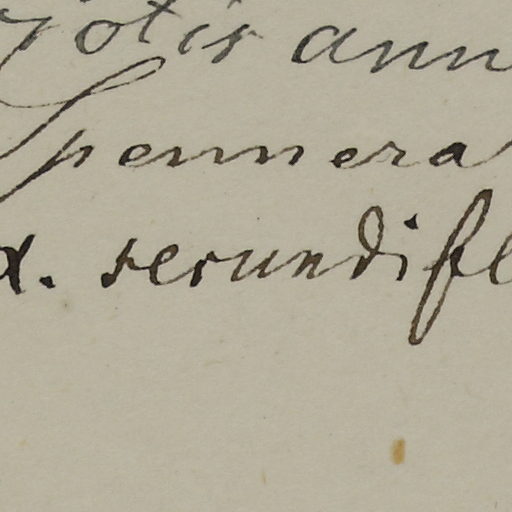 rotis ann
Spennera
α. secundifl